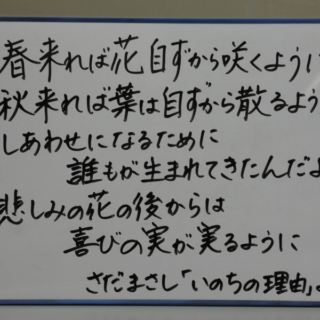 春来れば花自ずから咲くように
秋来れば葉は自ずから散るよう
しあわせになるために
誰もが生まれてきたんだよ
悲しみの花の後からは
喜びの実が実るように
さだまさし「いのちの理由」よ